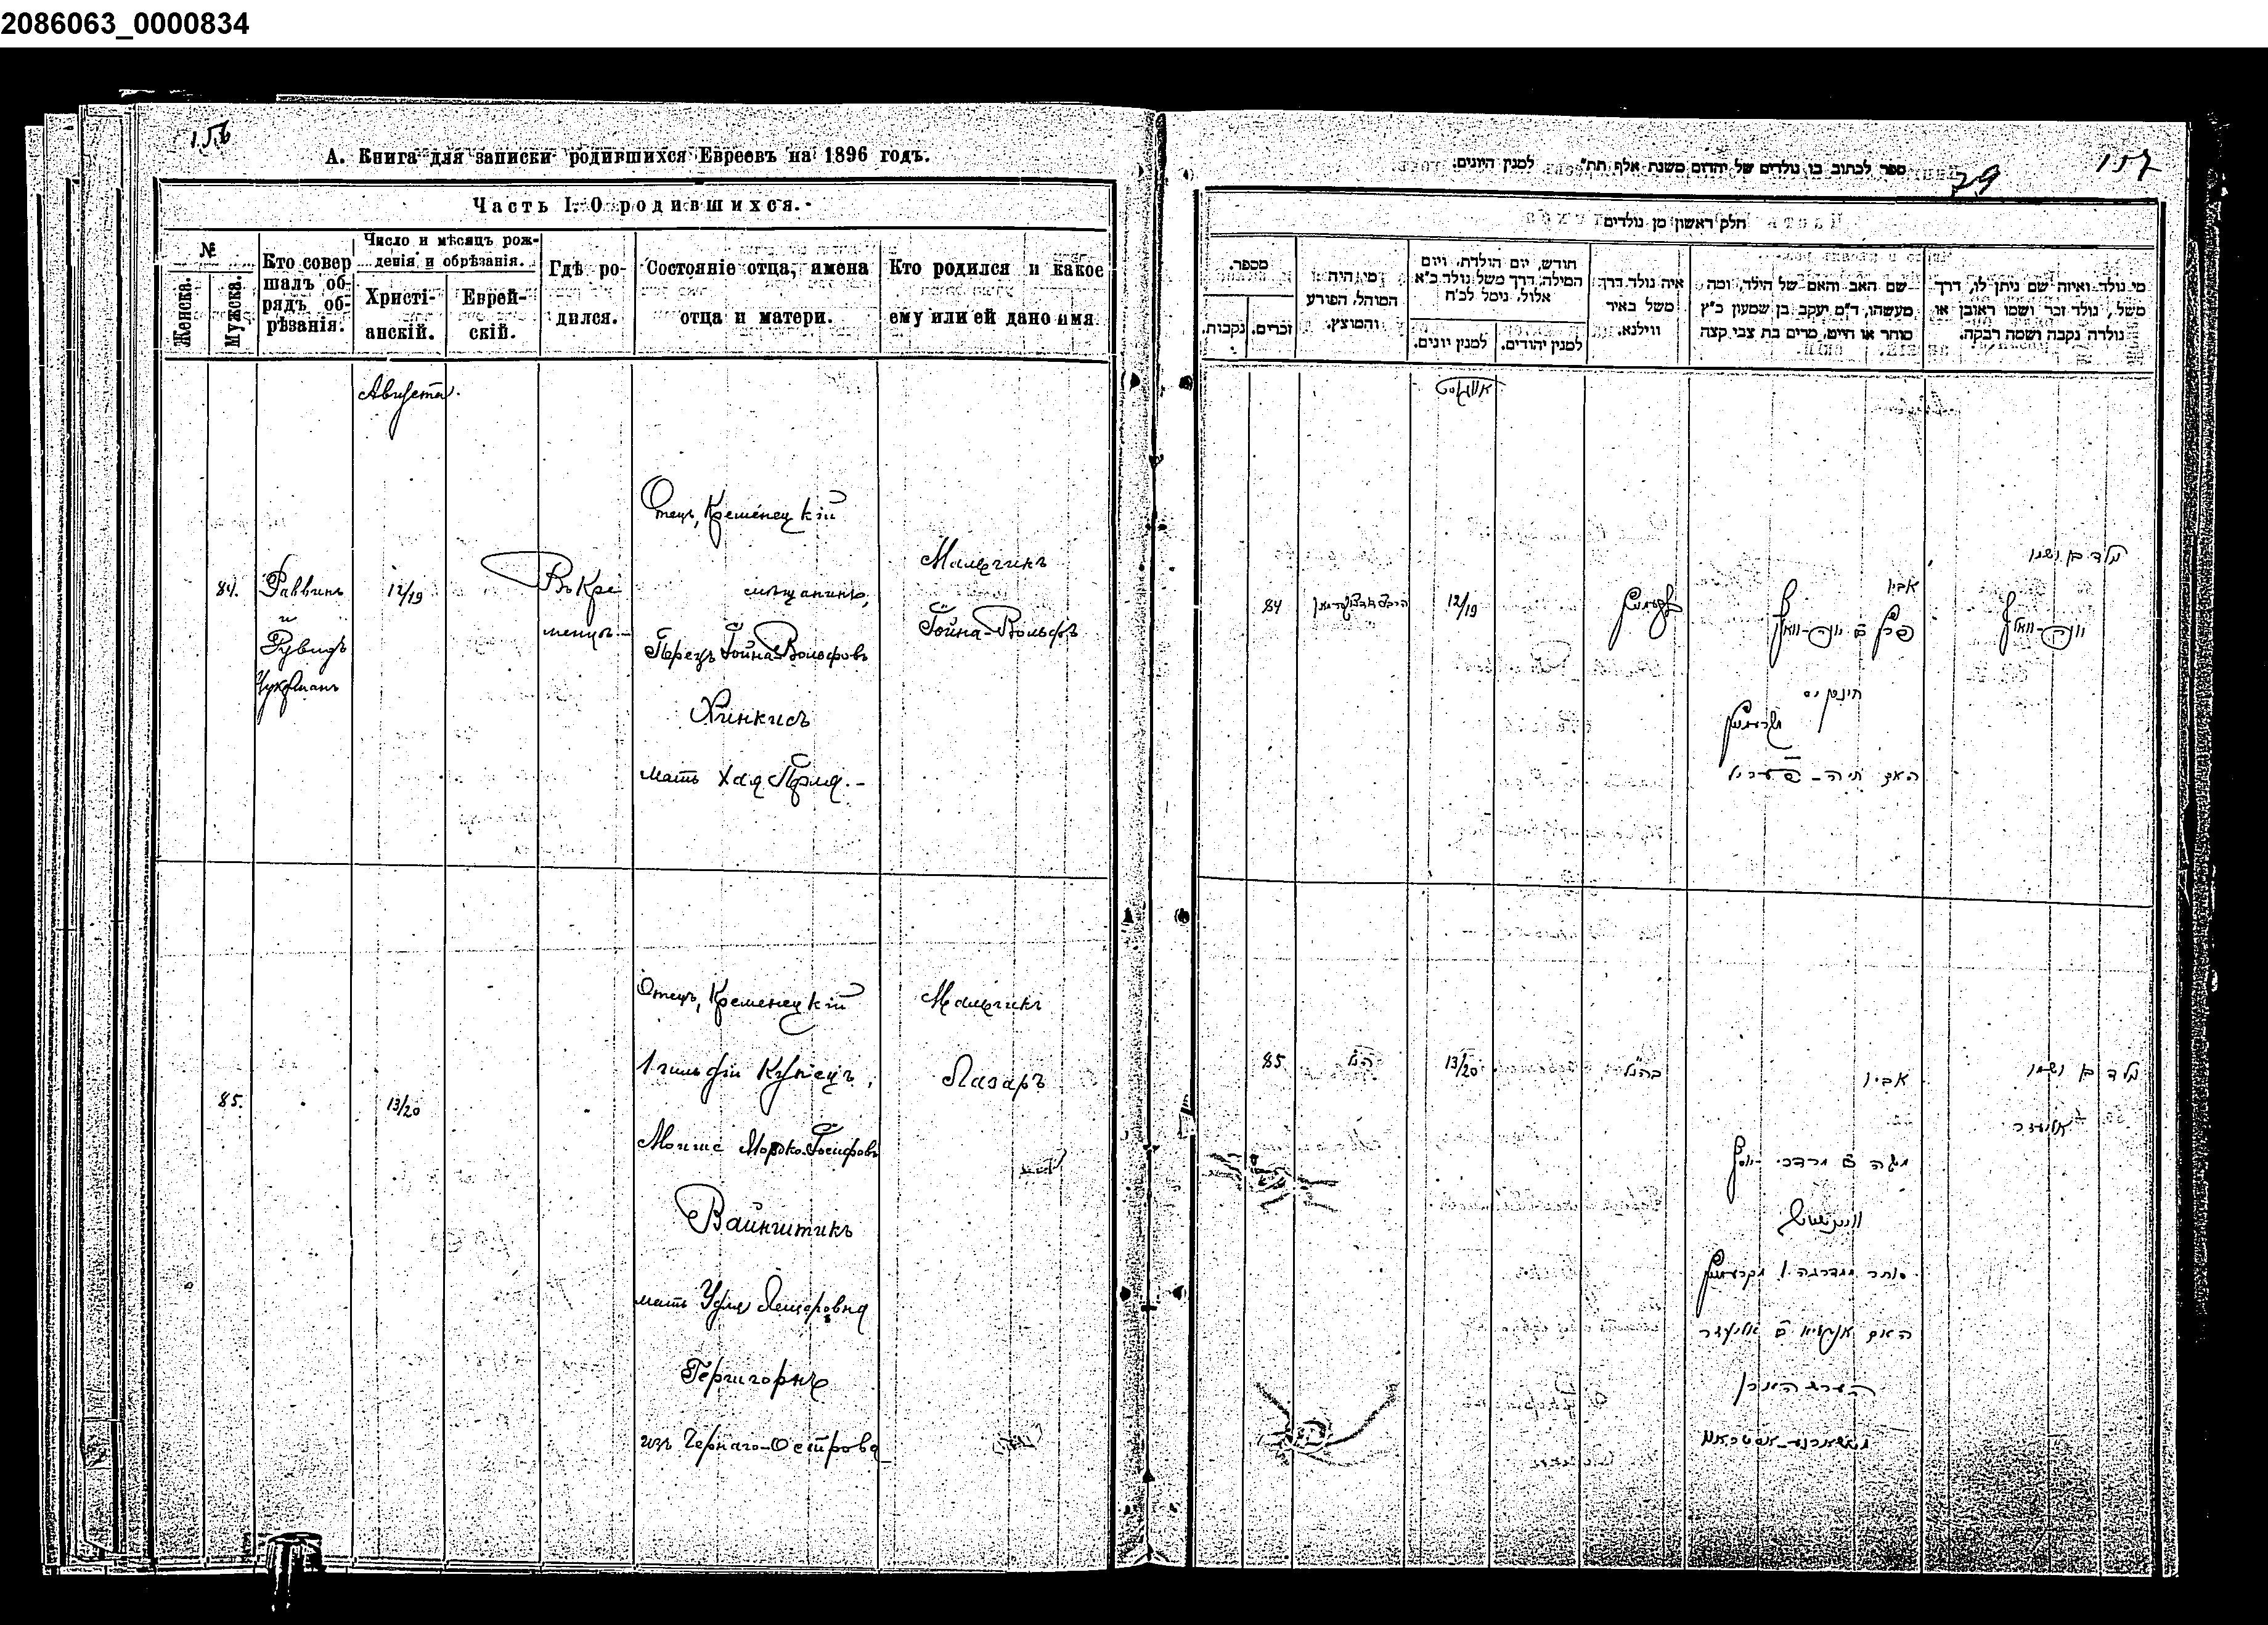 2086063_0000834
156
А. Книга для записки родившихся Евреевъ на 1896 годъ.
Часть I. О родившихся.
№
Женска.
Мужска.
Кто совер
шалъ об-
рядъ об-
рѣзанія.
Число и мѣсяцъ рож-
денія и обрѣзанія.
Христі-
анскій.
Еврей-
скій.
Гдѣ ро-
дился.
Состояніе отца, имена
отца и матери.
Кто родился и какое
ему или ей дано имя
Августа
84.
Раввинъ
и
Рувинъ
12/19
Въ Кре
менцѣ
Отецъ, Кременецкій
мѣщанинъ,
Перецъ Іойна-Вольфовъ
Хинкисъ
мать Хая Перля.-
Мальчикъ
Іойна-Вольфъ
85.
13/20
Отецъ, Кременецкій
1 гильдіи Купецъ,
Мойше Мордко-Іосифовъ
Вайнштикъ
мать
Гершгорнъ
изъ Чернаго-Острова
Мальчикъ
Лазаръ
157
79
ספר לכתוב בו נולדים של יהודים משנת אלף תת״ למנין היונים.
חלק ראשון מן נולדים
מספר.
נקבות.
זכרים.
מי היה
המוהל, הפורע
והמוצץ.
חודש, יום הולדת, ויום
המילה, דרך משל נולד כ״א
אלול, נימל לכ״ח
למנין יונים.
למנין יהודים.
איה נולד דרך
משל באיר
ווילנא.
שם האב והאם של הילד, ומה
מעשהו, ד״מ יעקב בן שמעון כ״ץ
סוחר או חייט, מרים בת צבי קצה
מי נולד ואיזה שם ניתן לו, דרך
משל, נולד זכר ושמו ראובן או
נולדה נקבה ושמה רבקה.
אוגוסט
84
12/19
קרעמניץ
אביו
פרץ ב יונה-וואלף
חינקיס
מקרעמניץ
האם חיה-פערל
נולד בן ושמו
יונה-וואלף
85
הנ״ל
13/20
בהנ״ל
אביו
משה ב מרדכי יוסף
וויינשטיק
סוחר מדרגה 1 מקרעמניץ
הערשהארן
נולד בן ושמו
אליעזר